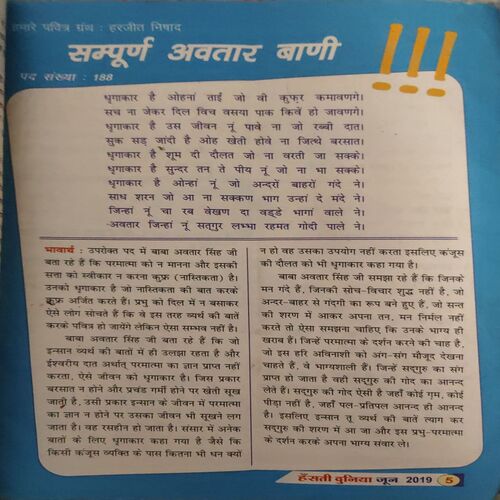 हमारे पवित्र ग्रंथ : हरजीत निषाद
सम्पूर्ण अवतार बाणी
!!!
पद संख्या : 188
धृगाकार है ओहनां ताईं जो वी कुफर कमावणगे।
सच ना जेकर दिल विच वसया पाक किवें हो जावणगे।
धृगाकार है उस जीवन नूं पावे ना जो रब्बी दात।
सुक सड़ जांदी है ओह खेती होवे ना जित्थे बरसात।
धृगाकार है शूम दी दौलत जो ना वरती जा सक्के।
धृगाकार है सुन्दर तन ते पीय नूं जो ना भा सक्के।
धृगाकार है ओन्हां नूं जो अन्दरों बाहरों गंदे ने।
साध शरन जो आ ना सक्कण भाग उन्हां दे मंदे ने।
जिन्हां नूं चा रब वेखण दा वड्डे भागां वाले ने।
-अवतार जिन्हां नूं सत्गुर लभ्भा रहमत गोदी पाले ने।
भावार्थ : उपरोक्त पद में बाबा अवतार सिंह जी
बता रहे हैं कि परमात्मा को न मानना और इसकी
सत्ता को स्वीकार न करना कुफ्र (नास्तिकता) है।
उनको धृगाकार है जो नास्तिकता की बात करके
कुफ्र अर्जित करते हैं। प्रभु को दिल में न बसाकर
ऐसे लोग सोचते हैं कि वे इस तरह व्यर्थ की बातें
करके पवित्र हो जायेंगे लेकिन ऐसा सम्भव नहीं है।
बाबा अवतार सिंह जी बता रहे हैं कि जो
इन्सान व्यर्थ की बातों में ही उलझा रहता है और
ईश्वरीय दात अर्थात् परमात्मा का ज्ञान प्राप्त नहीं
करता, ऐसे जीवन को धृगाकार है। जिस प्रकार
बरसात न होने और प्रचंड गर्मी होने पर खेती सूख
जाती है, उसी प्रकार इन्सान के जीवन में परमात्मा
का ज्ञान न होने पर उसका जीवन भी सूखने लग
जाता है। वह रसहीन हो जाता है। संसार में अनेक
बातों के लिए धृगाकार कहा गया है जैसे कि
किसी कंजूस व्यक्ति के पास कितना भी धन क्यों
न हो वह उसका उपयोग नहीं करता इसलिए कंजूस
की दौलत को भी धृगाकार कहा गया है।
बाबा अवतार सिंह जी समझा रहे हैं कि जिनके
मन गंदे हैं, जिनकी सोच-विचार शुद्ध नहीं है, जो
अन्दर-बाहर से गंदगी का रूप बने हुए हैं, जो सन्त
की शरण में आकर अपना तन, मन निर्मल नहीं
करते तो ऐसा समझना चाहिए कि उनके भाग्य ही
खराब हैं। जिन्हें परमात्मा के दर्शन करने की चाह है,
जो इस हरि अविनाशी को अंग-संग मौजूद देखना
चाहते हैं, वे भाग्यशाली हैं। जिन्हें सद्गुरु का संग
प्राप्त हो जाता है वही सद्गुरु की गोद का आनन्द
लेते हैं। सद्गुरु की गोद ऐसी है जहाँ कोई गम, कोई
पीड़ा नहीं है, जहाँ पल-प्रतिपल आनन्द ही आनन्द
है। इसलिए इन्सान तू व्यर्थ की बातें त्याग कर
सद्गुरु की शरण में आ जा और इस प्रभु-परमात्मा
के दर्शन करके अपना भाग्य संवार ले।
हँसती दुनिया जून 2019 5